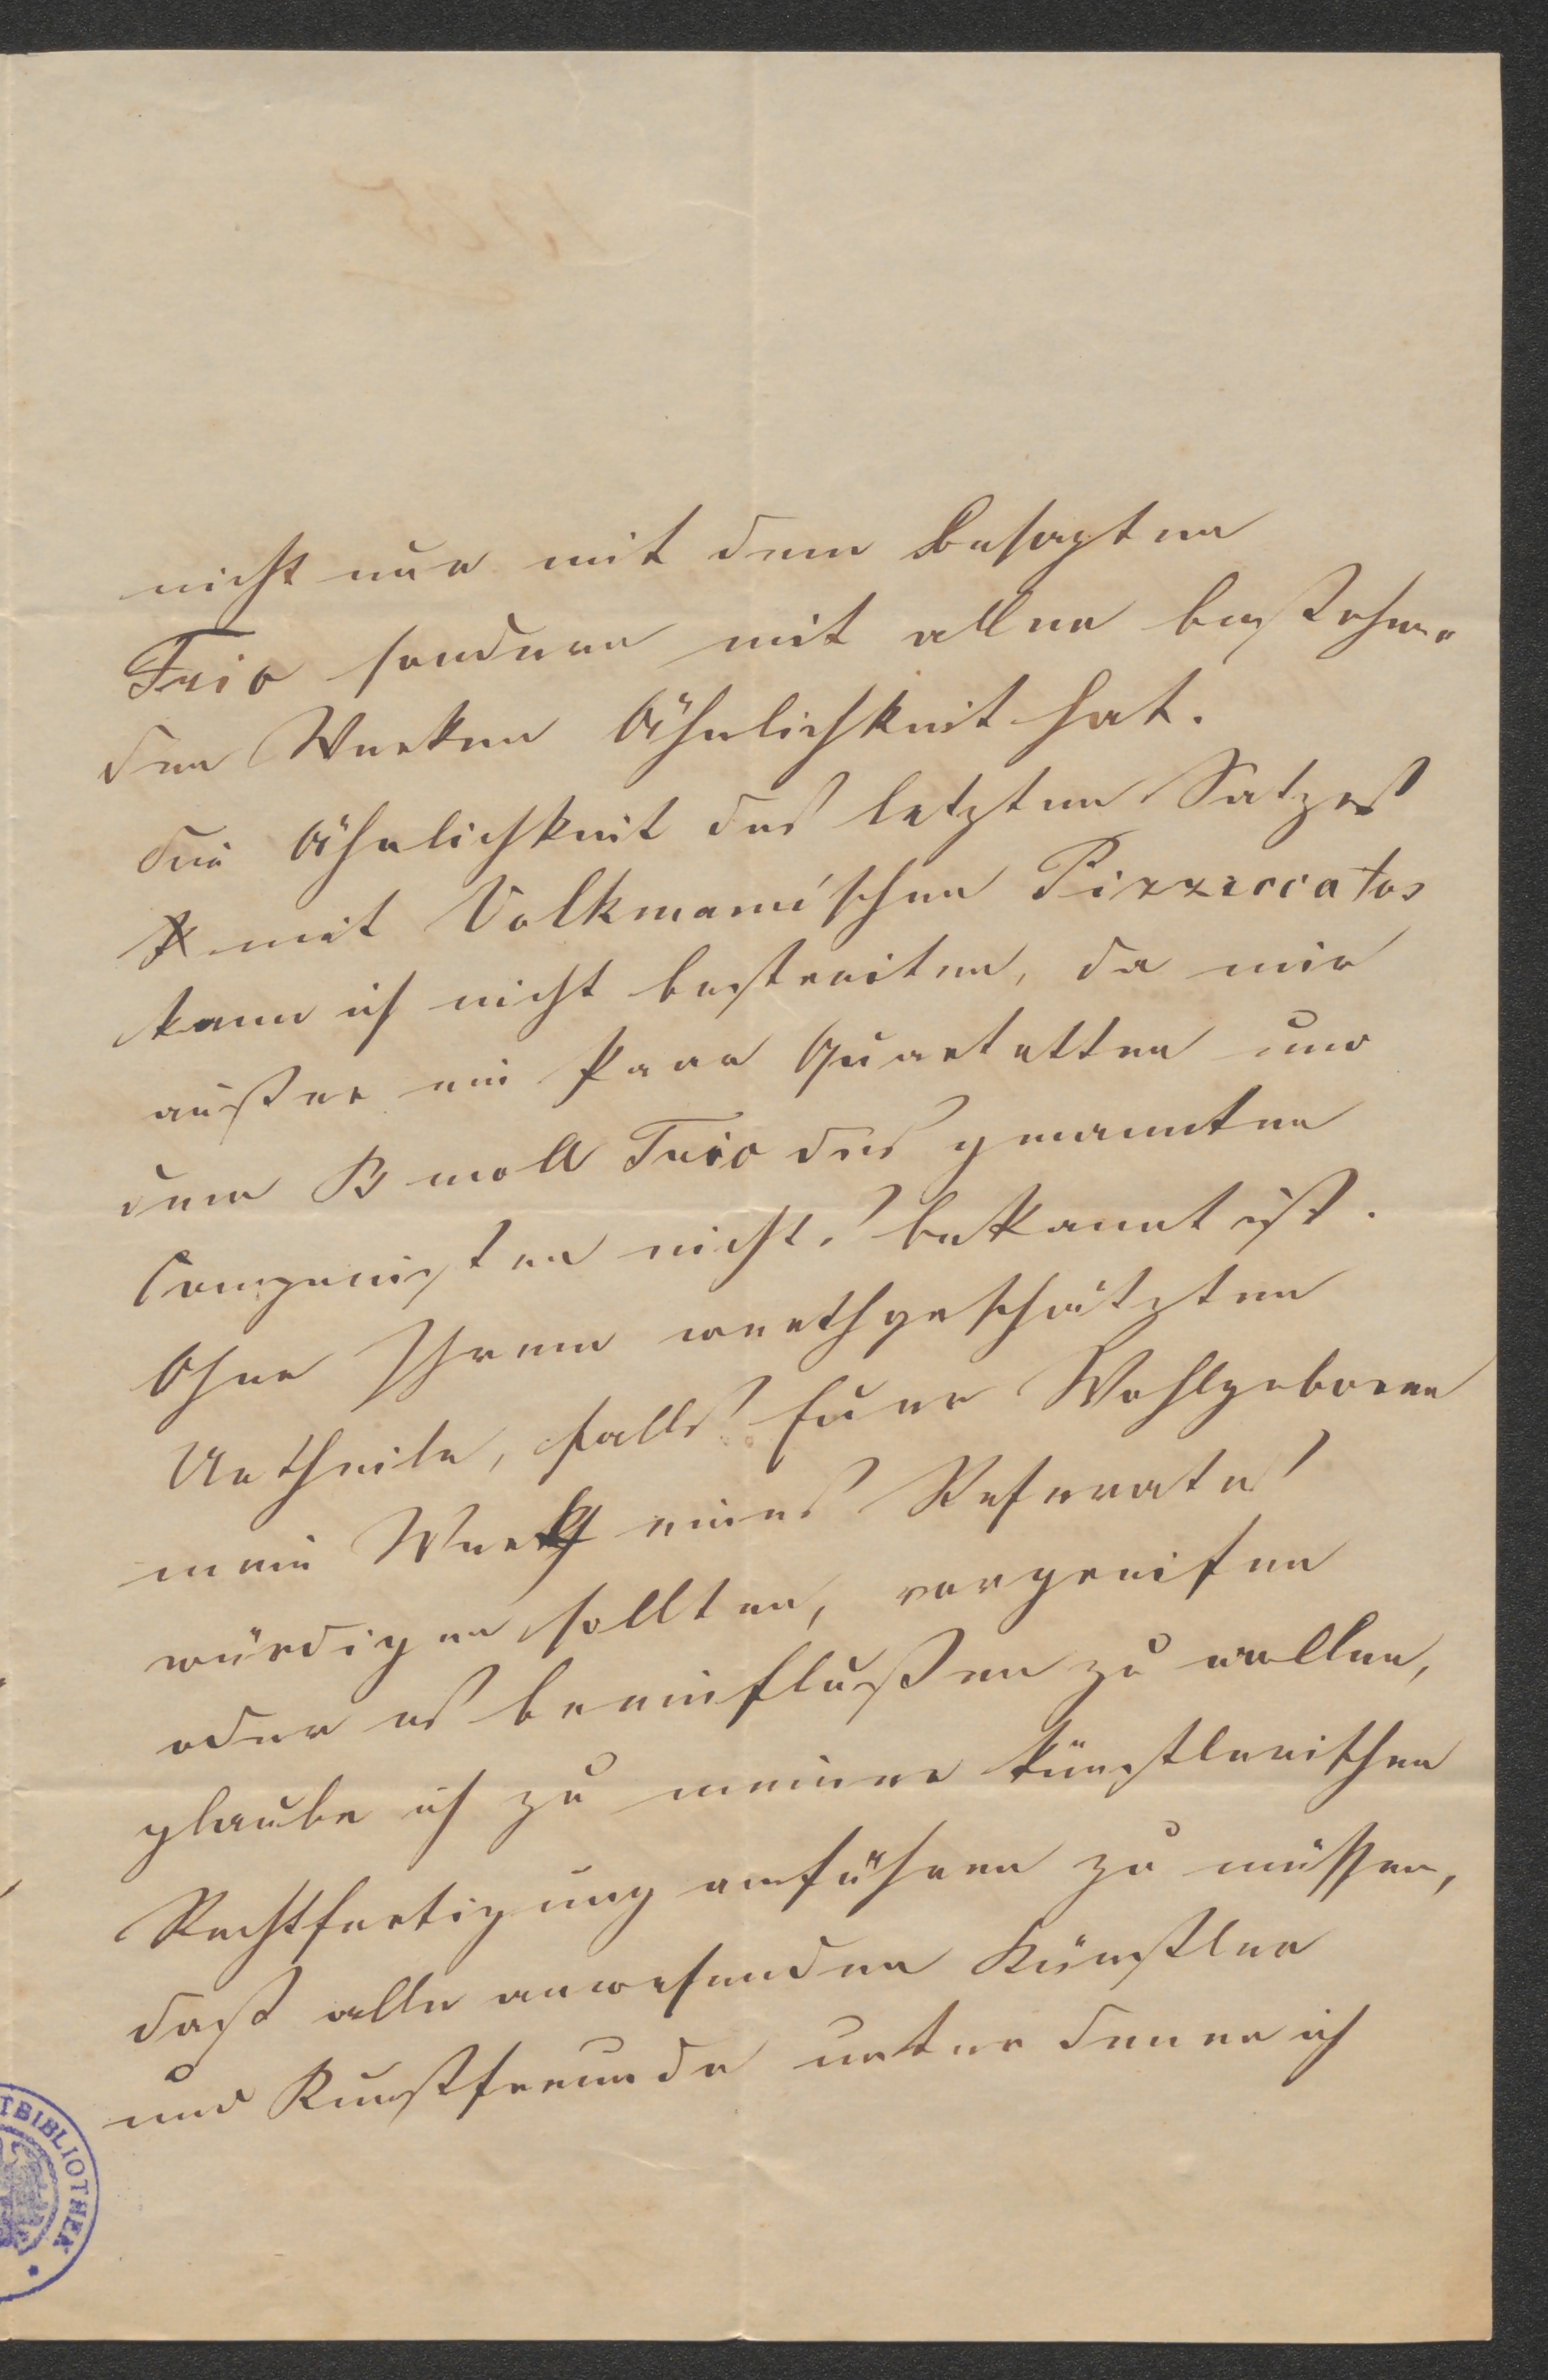 nicht nur mit dem besagten
Trio sondern mit allen bestehen-
den Werken Ähnlichkeit hat.
Die Ähnlichkeit des letzten Satzes
mit Volkmann'schen Pizziccatos
kann ich nicht bestreiten, da mir
außer ein Paar Quartetten und
dem B moll Trio des genannten
Componisten nichts bekannt ist.
Ohne Ihrem werthgeschätzten
Urtheile, falls Euer Wohlgeboren
mein Werk eines Referates
würdigen sollten, vorgreifen
oder es beeinflußen zu wollen,
glaube ich zu meiner künstlerischen
Rechtfertigung anführen zu müssen,
daß alle anwesenden Künstler
und Kunstfreunde unter denen ich
TBIBLIOTHEK